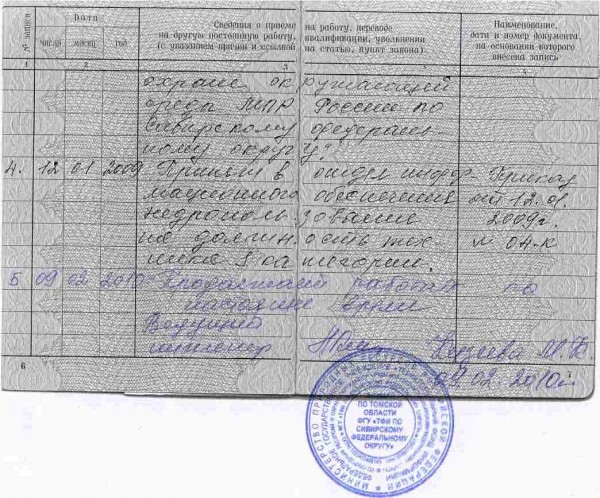 № записи
Дата
число
месяц
год
Сведения о приеме на работу, переводе
на другую постоянную работу, квалификации, увольнении
(с указанием причин и ссылкой на статью, пункт закона)
Наименование,
дата и номер документа,
на основании которого
внесена запись
1 2 3 4
охране окружающей
среды МПР России по
Сибирскому федераль-
ному округу".
4. 12 01 2009 Принят в отдел инфор- Приказ
мационного обеспечения от 12.01.
недропользования 2009г.
на должность тех- № 04-к
ника I категории.
5 09 02 2010 Продолжает работать по
настоящее время
Ведущий
инженер
09.02.2010г.
ПО ТОМСКОЙ
ОБЛАСТИ
ФГУ «ТФИ ПО
СИБИРСКОМУ
ФЕДЕРАЛЬНОМУ
ОКРУГУ»
6
7